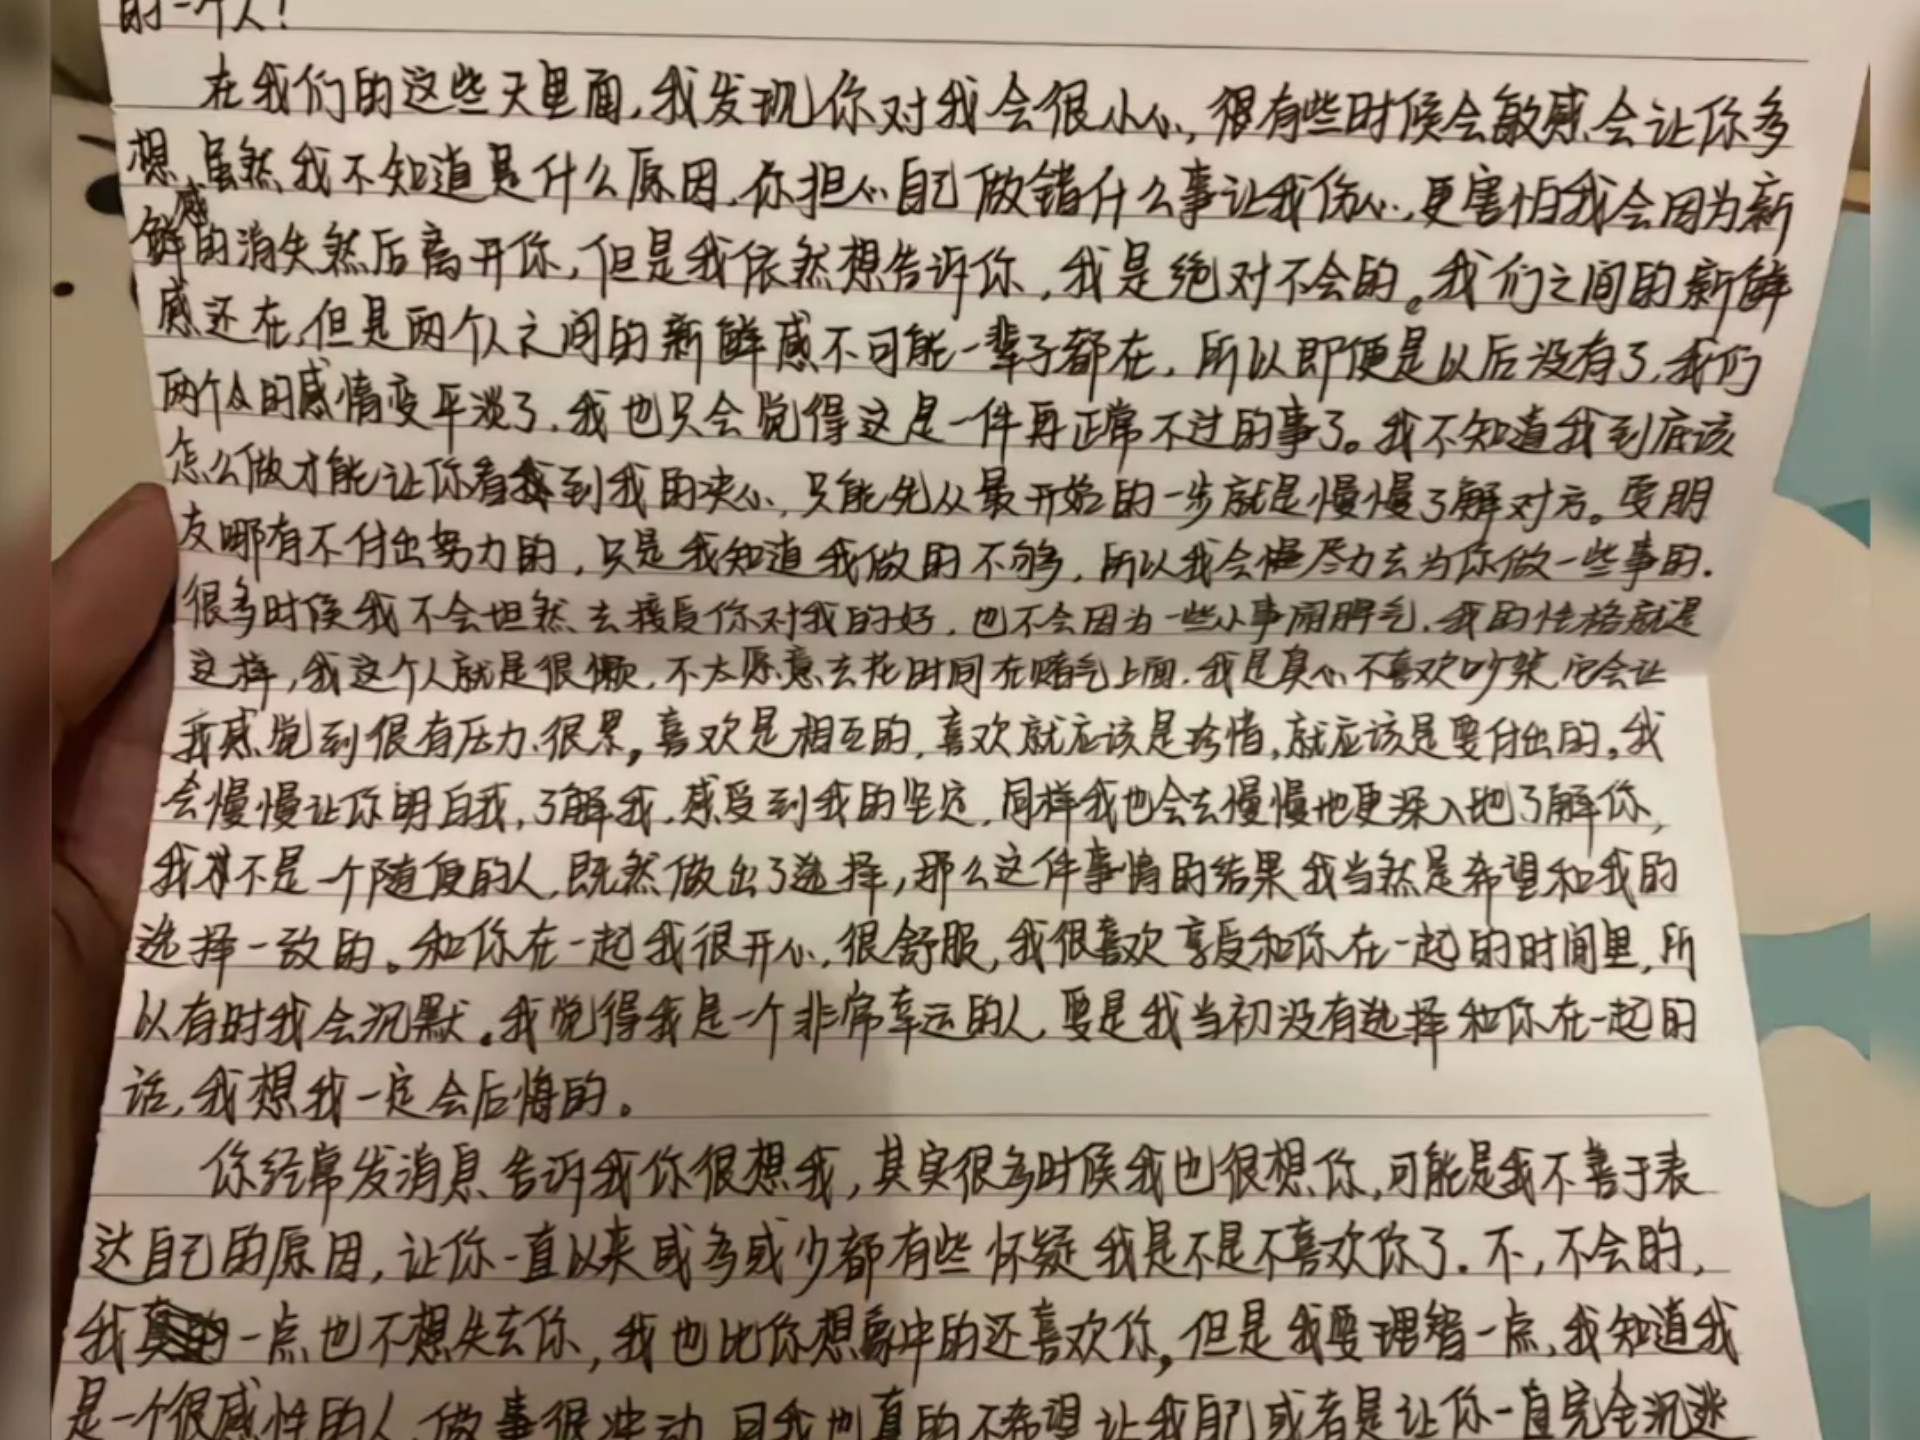 的一个人!
在我们的这些天里面,我发现你对我会很小心,很有些时候会敏感会让你多
想,虽然我不知道是什么原因,你担心自己做错什么事让我伤心,更害怕我会因为新
鲜感的消失然后离开你,但是我依然想告诉你,我是绝对不会的。我们之间的新鲜
感还在,但是两个人之间的新鲜感不可能一辈子都在,所以即便是以后没有了,我们
两个人的感情变平淡了,我也只会觉得这是一件再正常不过的事了。我不知道我到底该
怎么做才能让你看到我的决心,只能先从最开始的一步就是慢慢了解对方。耍朋
友哪有不付出努力的,只是我知道我做的不够,所以我会尽力去为你做一些事的.
很多时候我不会坦然去接受你对我的好,也不会因为一些小事闹脾气,我的性格就是
这样,我这个人就是很懒,不太愿意去花时间在赌气上面.我是真心不喜欢吵架,它会让
我感觉到很有压力、很累,喜欢是相互的,喜欢就应该是珍惜,就应该是要付出的。我
会慢慢让你明白我,了解我,感受到我的坚定,同样我也会去慢慢地更深入地了解你,
我不是一个随便的人,既然做出了选择,那么这件事情的结果我当然是希望和我的
选择一致的。和你在一起我很开心,很舒服,我很喜欢享受和你在一起的时间里,所
以有时我会沉默。我觉得我是一个非常幸运的人,要是我当初没有选择和你在一起的
话,我想我一定会后悔的。
你经常发消息告诉我你很想我,其实很多时候我也很想你,可能是我不善于表
达自己的原因,让你一直以来或多或少都有些怀疑我是不是不喜欢你了.不,不会的,
我一点也不想失去你,我也比你想象中的还喜欢你,但是我要理智一点,我知道我
是一个很感性的人,做事很冲动,但我也真的不希望让我自己或者是让你一直完全沉迷